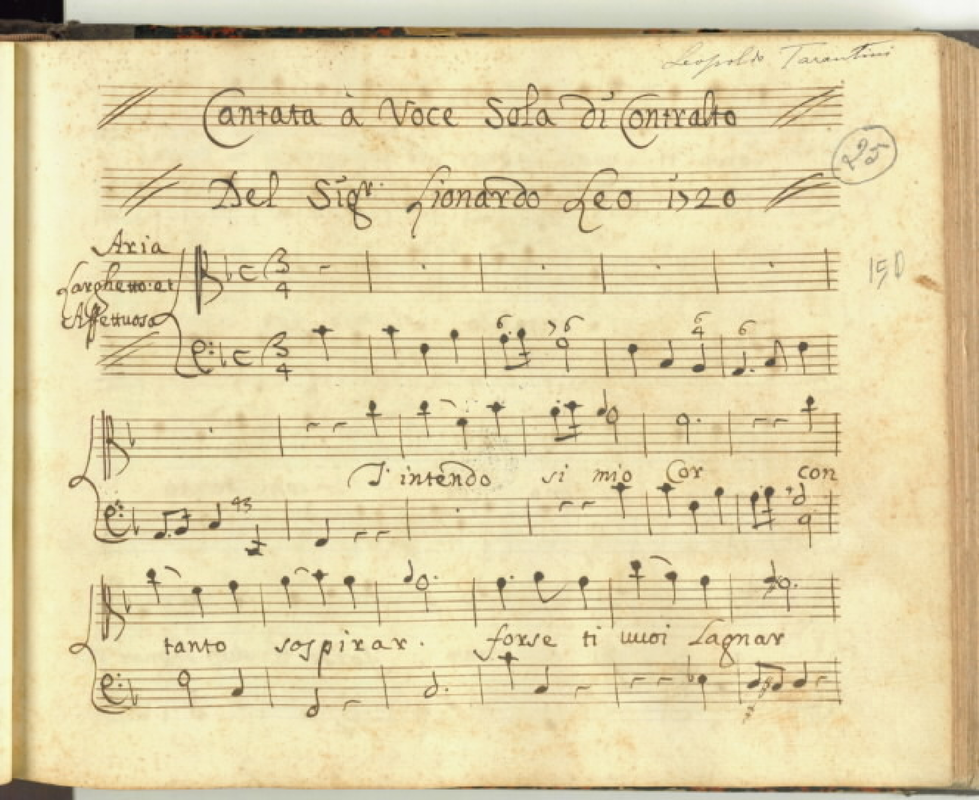 Leopoldo Tarantini
Cantata à Voce Sola di Contralto
25
Del Sigr. Lionardo Leo 1720
Aria
Larghetto: et
Affettuoso
150
T'intendo si mio Cor con
tanto sospirar. forse ti vuoi Lagnar